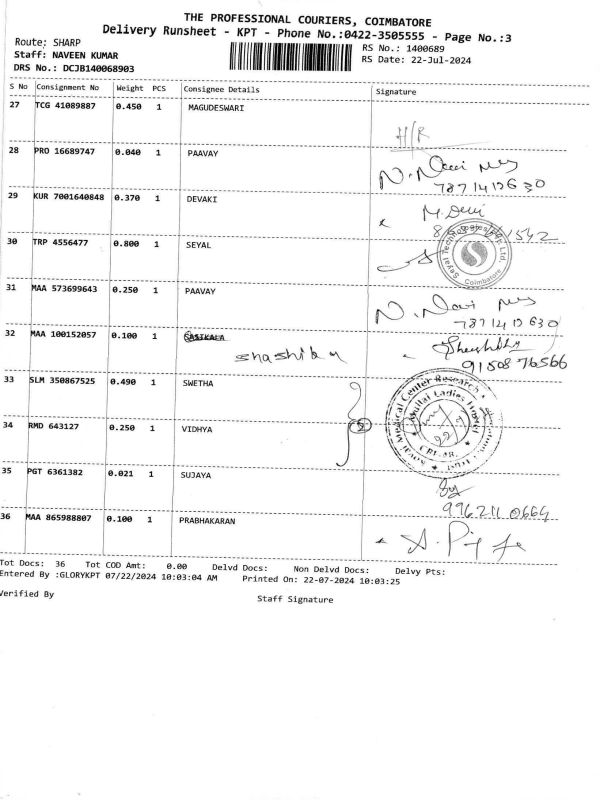 THE PROFESSIONAL COURIERS, COIMBATORE
Delivery Runsheet - KPT - Phone No.:0422-3505555 - Page No.:3
Route: SHARP
RS No.: 1400689
Staff: NAVEEN KUMAR
RS Date: 22-Jul-2024
DRS No.: DCJB140068903
S No Consignment No Weight PCS Consignee Details Signature
27 TCG 41089887 0.450 1 MAGUDESWARI
H/R
28 PRO 16689747 0.040 1 PAAVAY
N. Devi
7871412630
29 KUR 7001640848 0.370 1 DEVAKI
M. Devi
30 TRP 4556477 0.800 1 SEYAL
Coimbatore
31 MAA 573699643 0.250 1 PAAVAY
N. Devi
7871412630
32 MAA 100152057 0.100 1 SASIKALA
9150876566
33 SLM 350867525 0.490 1 SWETHA
Medical Center Research
Ladies Hostel
34 RMD 643127 0.250 1 VIDHYA
35 PGT 6361382 0.021 1 SUJAYA
36 MAA 865988807 0.100 1 PRABHAKARAN
Tot Docs: 36 Tot COD Amt: 0.00 Delvd Docs: Non Delvd Docs: Delvy Pts:
Entered By :GLORYKPT 07/22/2024 10:03:04 AM Printed On: 22-07-2024 10:03:25
Verified By
Staff Signature